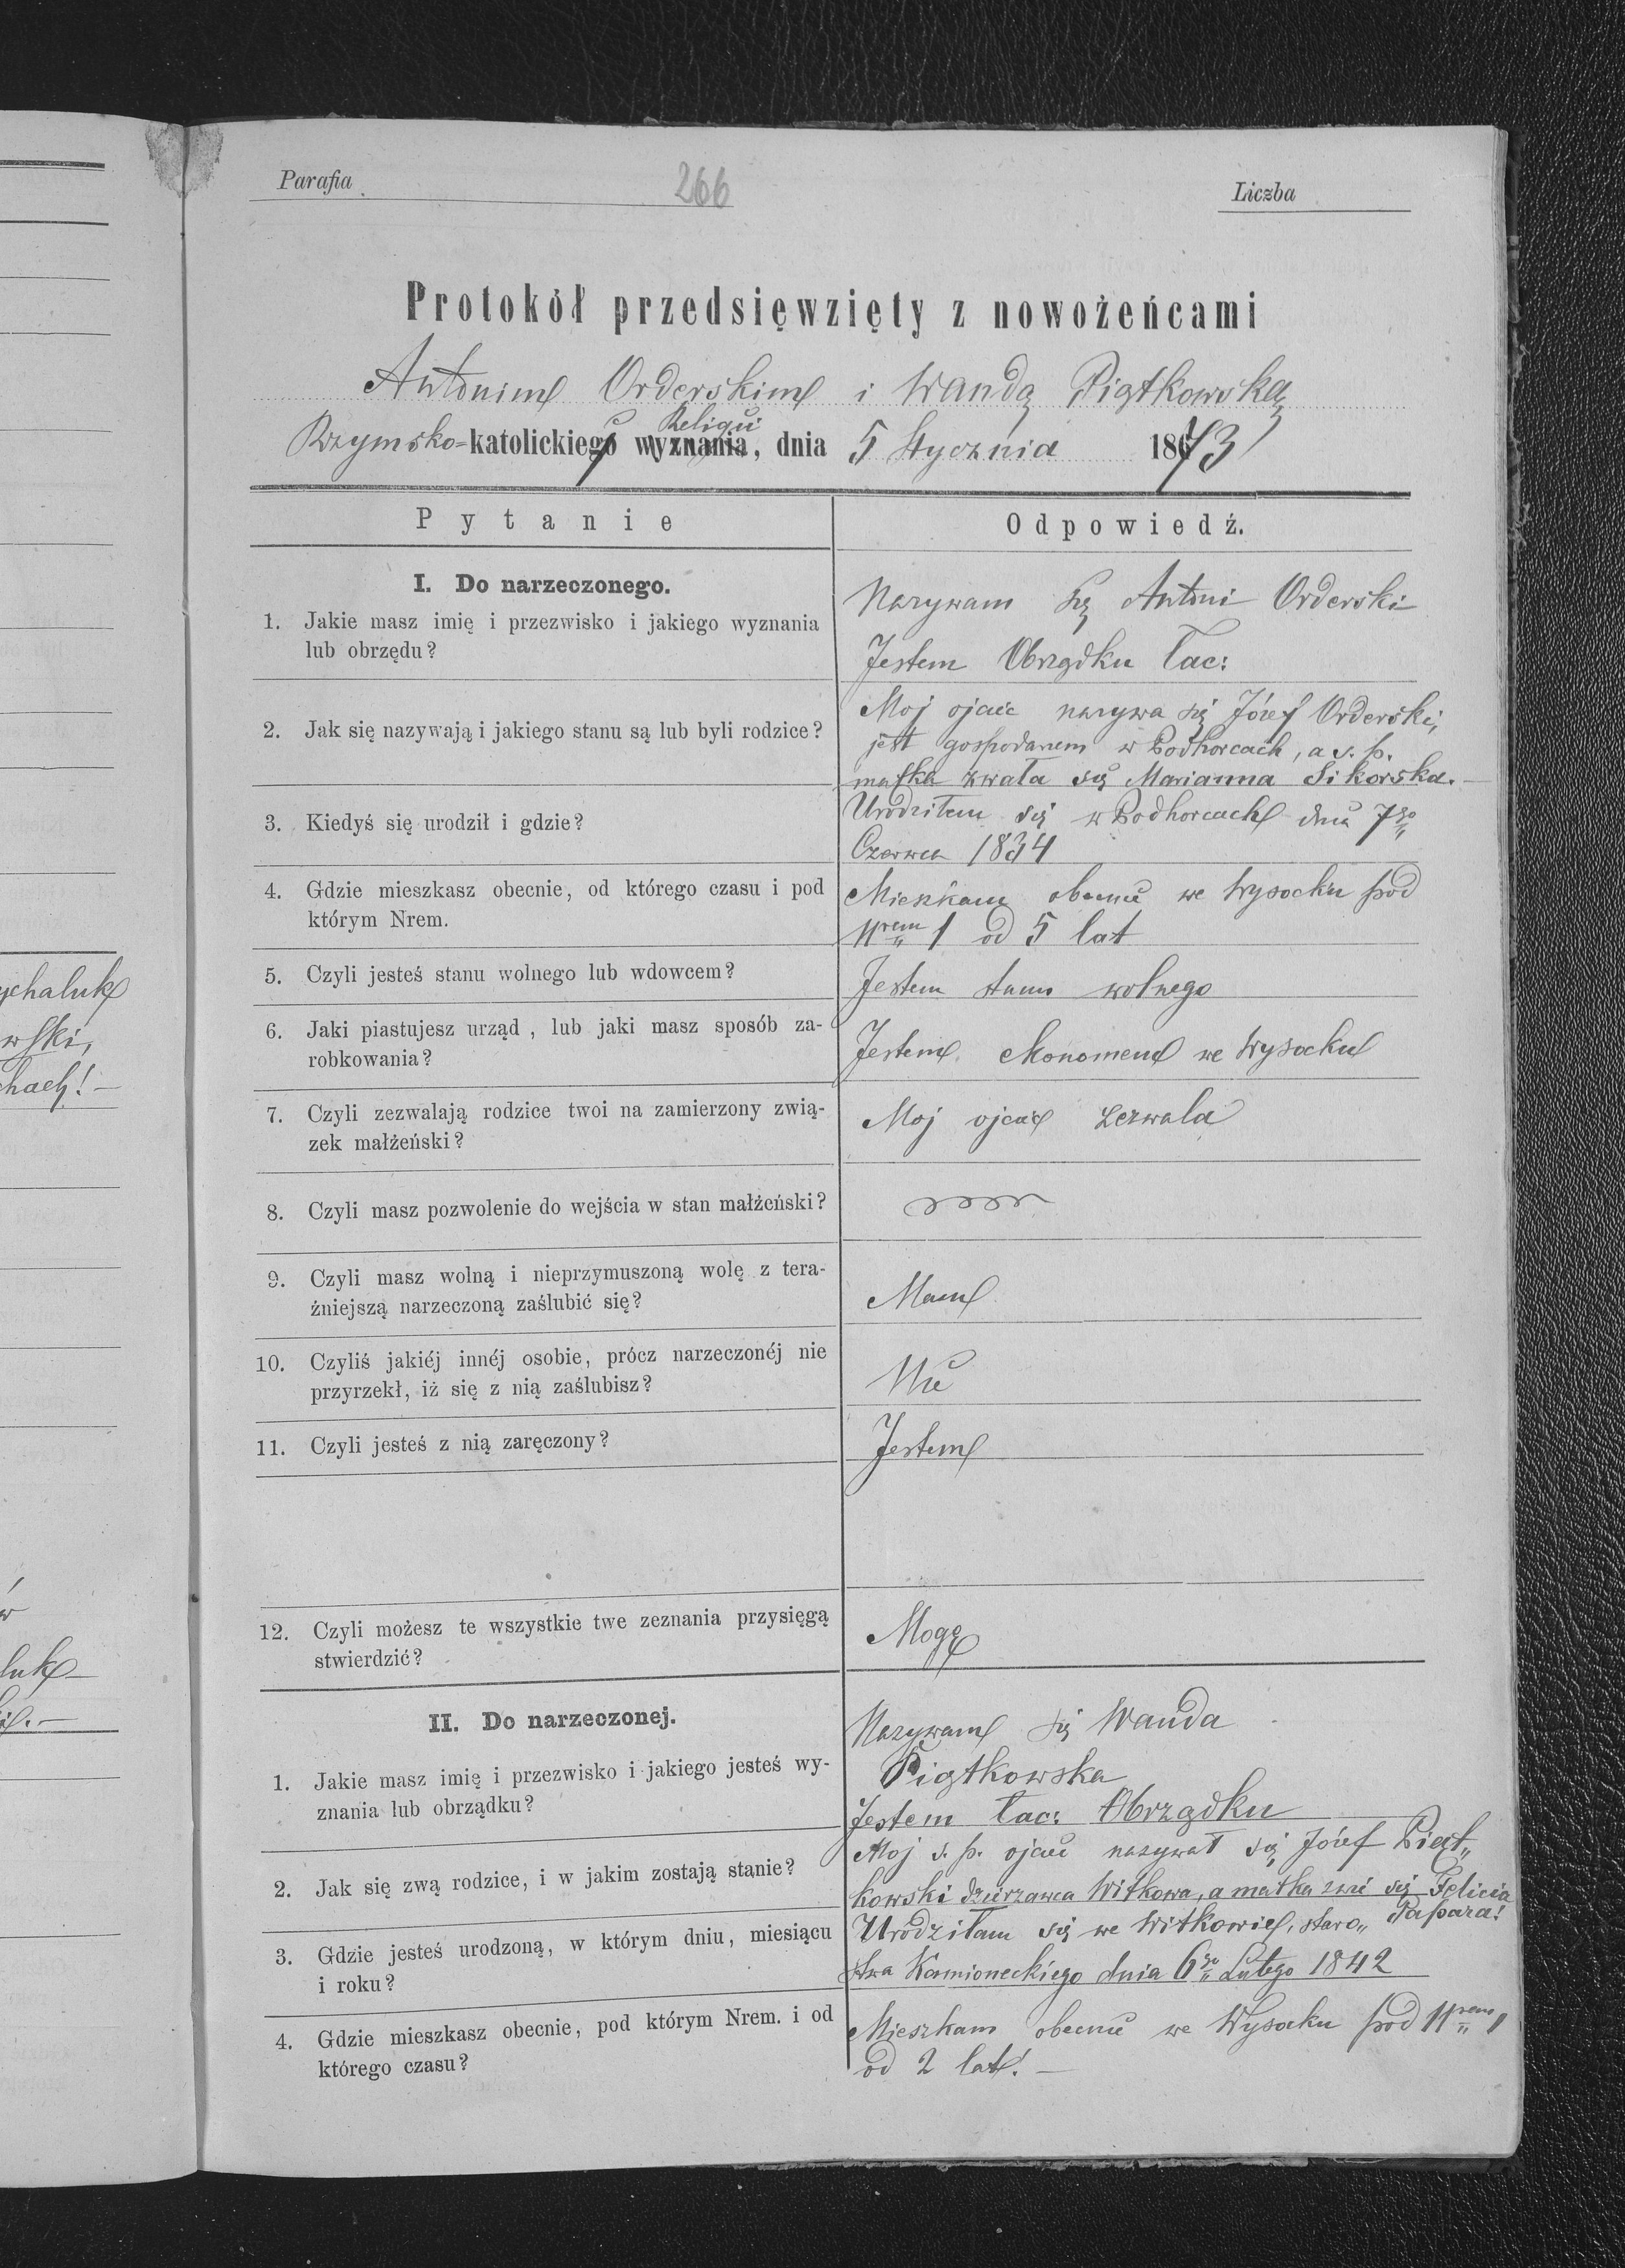 Parafia
266
Liczba
Protokół przedsięwzięty z nowożeńcami
Antonim Orderskim i Wandą Piątkowską
Religii
Rzymsko-katolickiego wyznania, dnia 5 Stycznia 1873
Pytanie
Odpowiedź.
I. Do narzeczonego.
1. Jakie masz imię i przezwisko i jakiego wyznania
lub obrzędu?
Nazywam się Antoni Orderski
Jestem Obrządku łac:
2. Jak się nazywają i jakiego stanu są lub byli rodzice?
Moj ojciec nazywa się Józef Orderski,
jest gospodarzem w Podhorcach, a ś. p.
matka zwała się Marianna Sikorska.—
3. Kiedyś się urodził i gdzie?
Urodziłem się w Podhorcach dnia 7go
Czerwca 1834
4. Gdzie mieszkasz obecnie, od którego czasu i pod
którym Nrem.
Mieszkam obecnie we Wysocku pod
Nrem 1 od 5 lat
5. Czyli jesteś stanu wolnego lub wdowcem?
Jestem stanu wolnego
6. Jaki piastujesz urząd, lub jaki masz sposób za-
robkowania?
Jestem ekonomem we Wysocku
7. Czyli zezwalają rodzice twoi na zamierzony zwią-
zek małżeński?
Moj ojciec zezwala
8. Czyli masz pozwolenie do wejścia w stan małżeński?
9. Czyli masz wolną i nieprzymuszoną wolę z tera-
źniejszą narzeczoną zaślubić się?
Mam
10. Czyliś jakiéj innéj osobie, prócz narzeczonéj nie
przyrzekł, iż się z nią zaślubisz?
Nie
11. Czyli jesteś z nią zaręczony?
Jestem
12. Czyli możesz te wszystkie twe zeznania przysięgą
stwierdzić?
Mogę
II. Do narzeczonej.
1. Jakie masz imię i przezwisko i jakiego jesteś wy-
znania lub obrządku?
Nazywam się Wanda
Piątkowska
Jestem łac: Obrządku
2. Jak się zwą rodzice, i w jakim zostają stanie?
Moj ś. p. ojciec nazywał się Józef Piąt„
kowski dzierzawca Witkowa, a matka zwie się Felicia
Papara!
3. Gdzie jesteś urodzoną, w którym dniu, miesiącu
i roku?
Urodziłam się we Witkowie, staro„
stwa Kamioneckiego dnia 6go Lutego 1842
4. Gdzie mieszkasz obecnie, pod którym Nrem. i od
którego czasu?
Mieszkam obecnie we Wysocku pod Nrem 1
od 2 lat!—
ychaluk
wski,
chach!—
luk